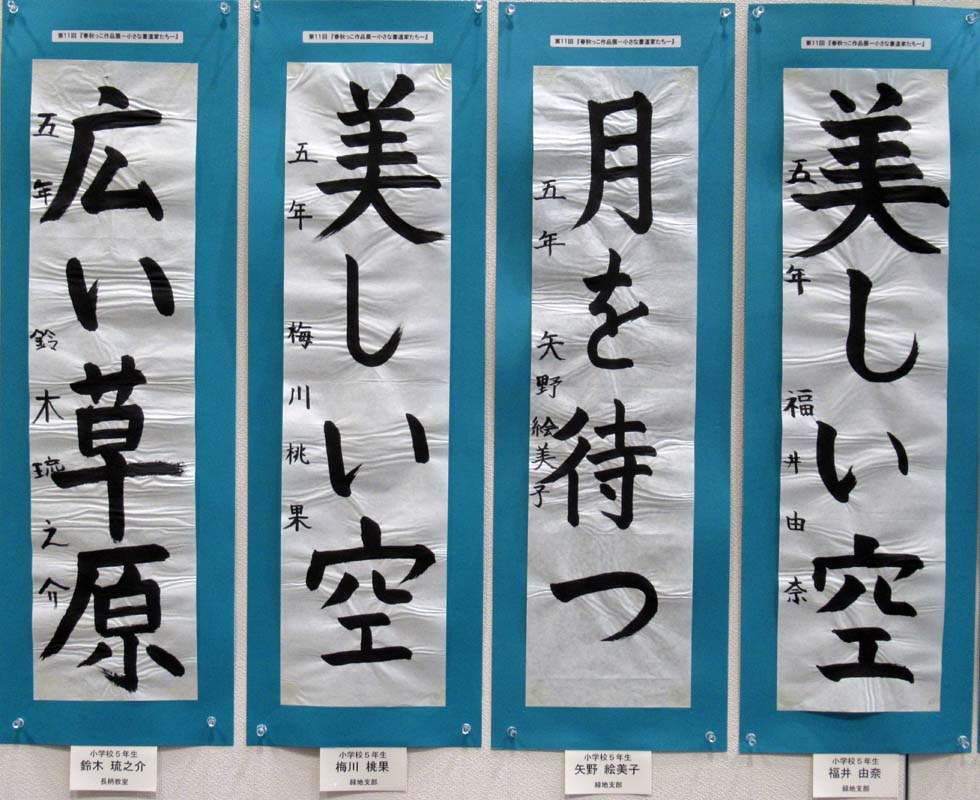 第11回『春秋っこ作品展―小さな書道家たち―』
広い草原
五年 鈴木琉之介
小学校5年生
鈴木 琉之介
長柄教室
第11回『春秋っこ作品展―小さな書道家たち―』
美しい空
五年 梅川桃果
小学校5年生
梅川 桃果
緑地支部
第11回『春秋っこ作品展―小さな書道家たち―』
月を待つ
五年 矢野絵美子
小学校5年生
矢野 絵美子
緑地支部
第11回『春秋っこ作品展―小さな書道家たち―』
美しい空
五年 福井由奈
小学校5年生
福井 由奈
緑地支部